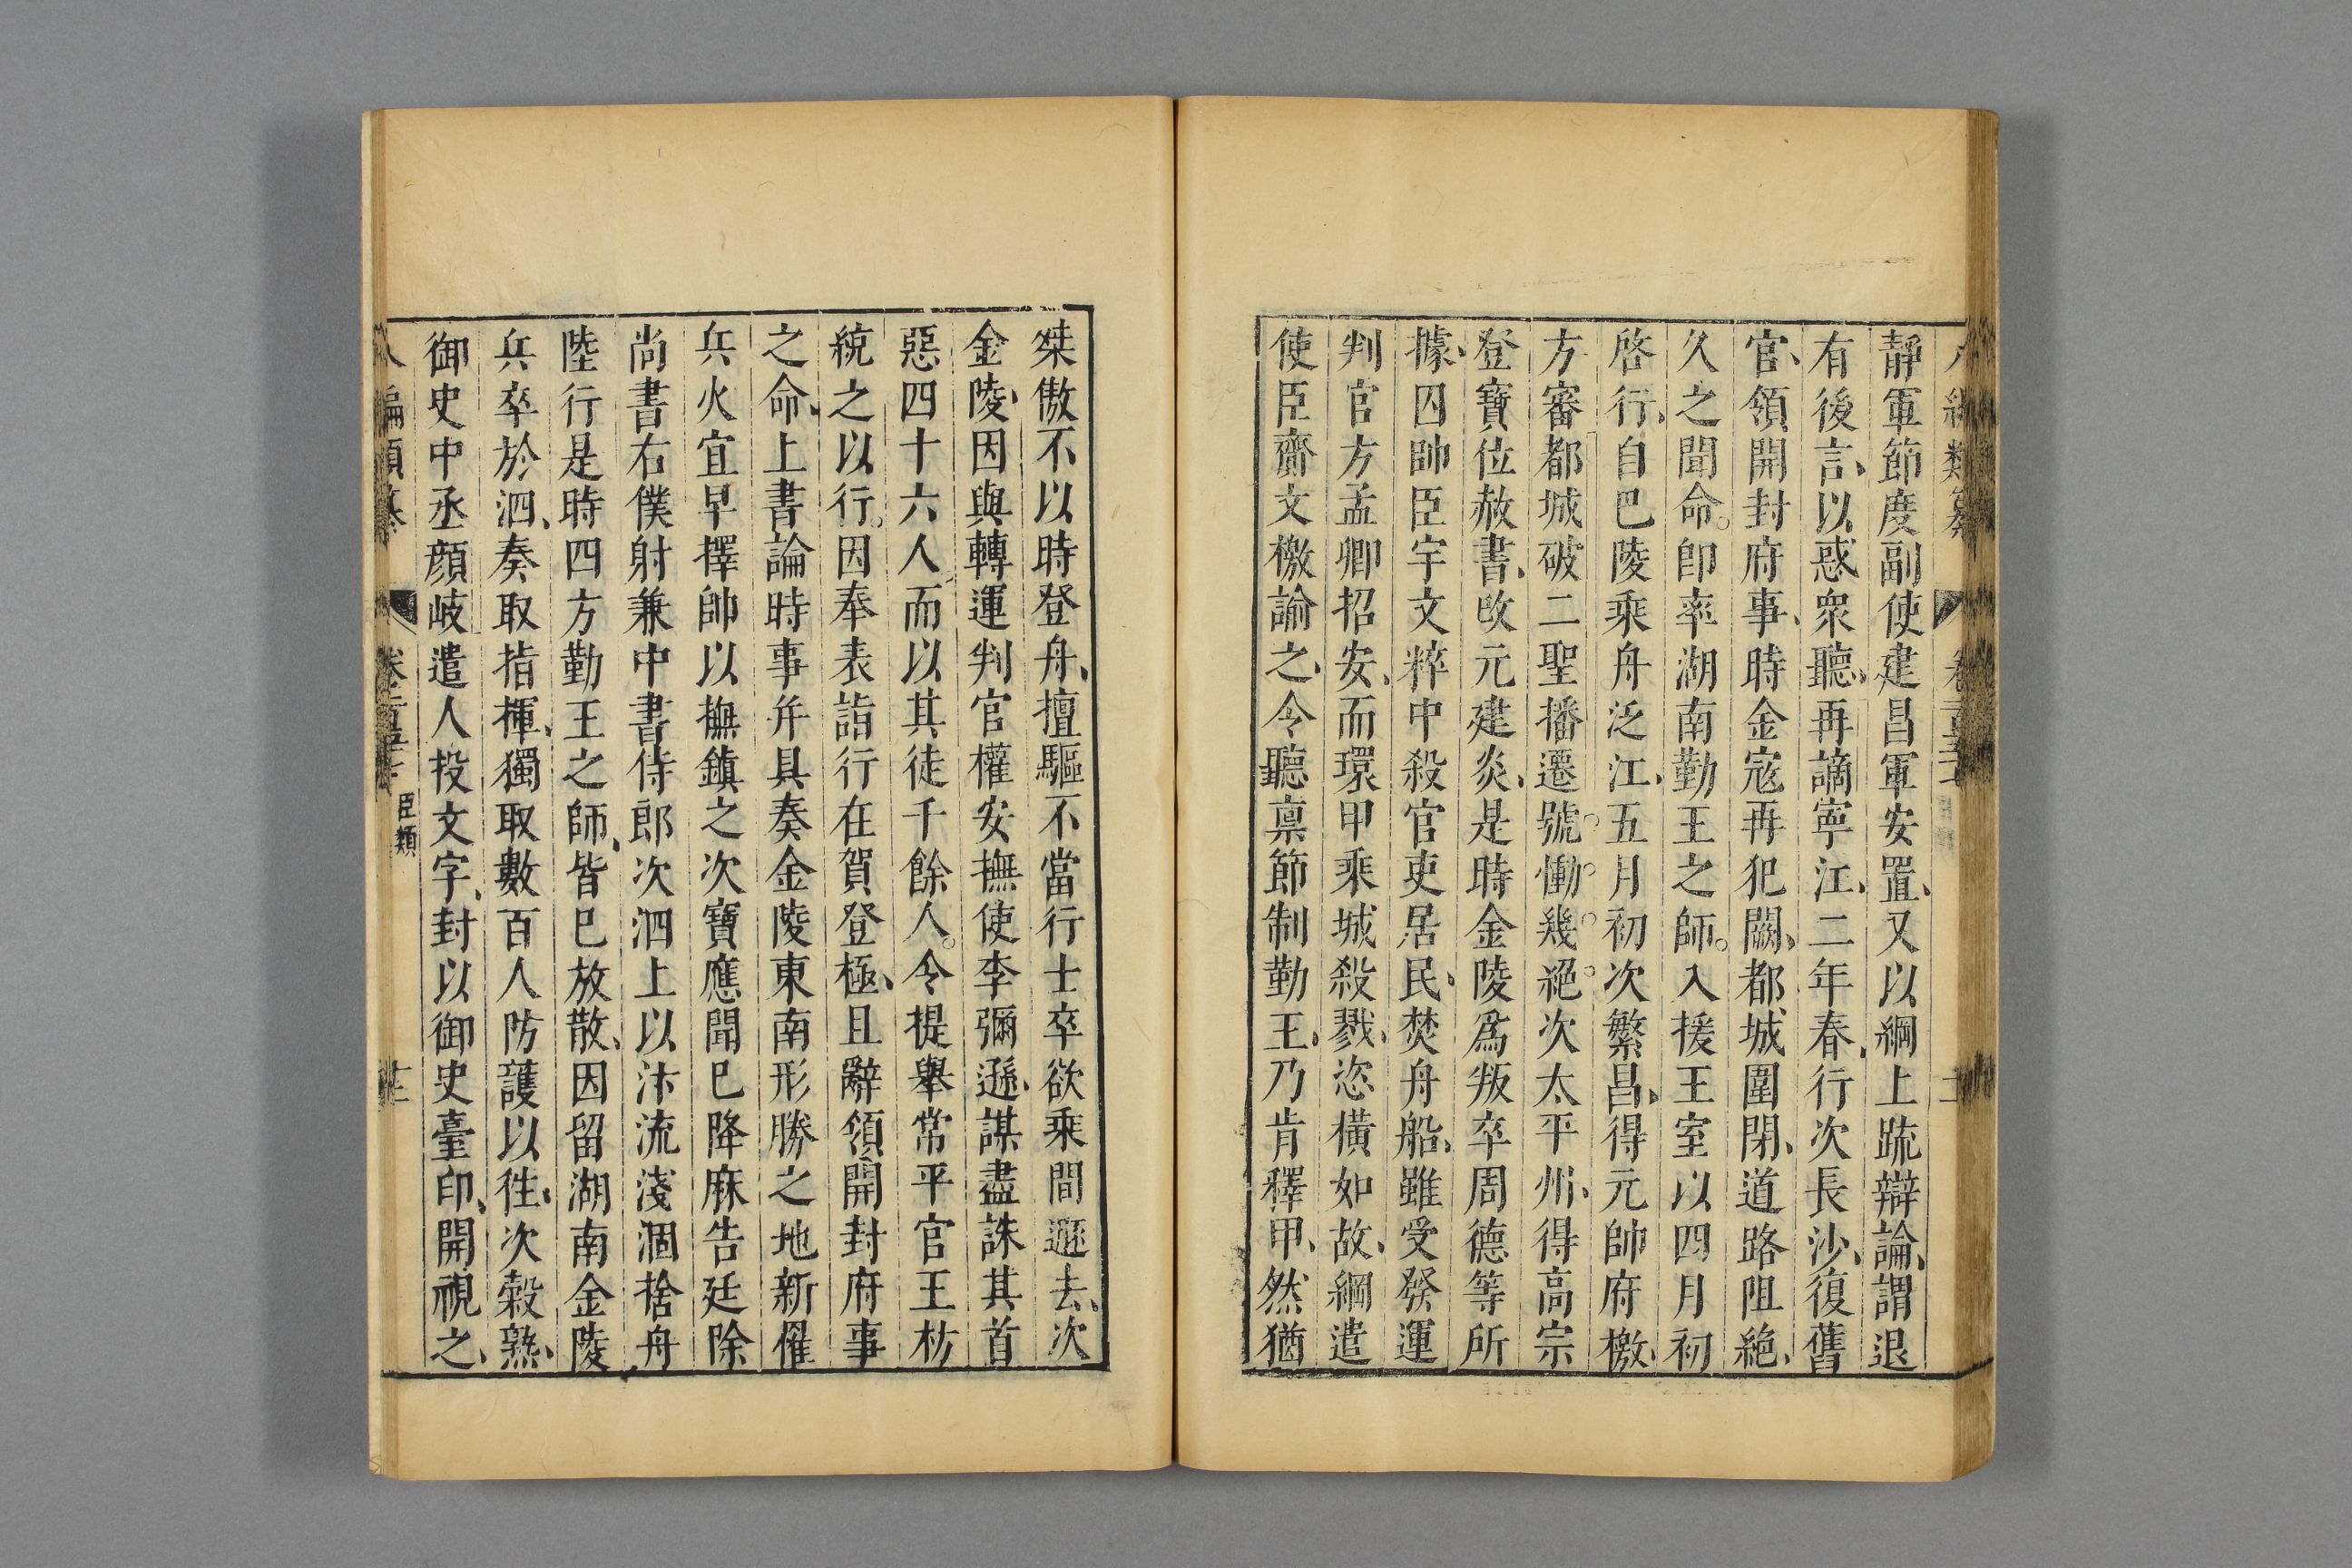 靜軍節度副使建昌軍安置、又以綱上疏辯論、謂退
有後言、以惑衆聽、再謫寧江、二年春、行次長沙、復舊
官、領開封府事、時金寇再犯闕、都城圍閉、道路阻絕、
久之聞命。卽率湖南勤王之師。入援王室以四月初
啓行、自巴陵乘舟泛江、五月初次繁昌、得元帥府檄、
方審都城破二聖播遷號。慟。幾。絕。次太平州、得高宗
登寶位赦書、改元建炎、是時金陵爲叛卒周德等所
據、囚帥臣宇文粹中殺官吏居民、焚舟船、雖受發運
判官方孟卿招安、而環甲乘城殺戮、恣橫如故、綱遣
使臣齎文檄諭之、令聽禀節制勤王、乃肯釋甲、然猶
桀傲不以時登舟、擅驅不當行士卒欲乘間遯去、次
金陵、因與轉運判官權安撫使李彌遜、謀盡誅其首
惡四十六人而以其徒千餘人。令提舉常平官王枋
統之以行。因奉表詣行在賀登極、且辭領開封府事
之命、上書論時事并具奏金陵東南形勝之地新罹
兵火宜早擇帥以撫鎮之次寶應聞已降麻告廷除
尚書右僕射兼中書侍郎次泗上以汴流淺涸捨舟
陸行是時四方勤王之師、皆已放散、因留湖南金陵
兵卒於泗、奏取指揮、獨取數百人防護以徃、次穀熟、
御史中丞顏岐遣人投文字、封以御史臺印、開視之、
編類纂
臣類